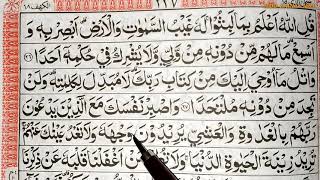 الكهف ١٨
٢٩٧
قُلِ اللّٰهُ اَعْلَمُ بِمَا لَبِثُوْا ۚ لَهٗ غَيْبُ السَّمٰوٰتِ وَالْاَرْضِ ؕ اَبْصِرْ بِهٖ وَ
اَسْمِعْ ؕ مَا لَهُمْ مِّنْ دُوْنِهٖ مِنْ وَّلِيٍّ ۫ وَّلَا يُشْرِكُ فِيْ حُكْمِهٖۤ اَحَدًا ﴿۲۶﴾
وَاتْلُ مَاۤ اُوْحِيَ اِلَيْكَ مِنْ كِتَابِ رَبِّكَ ؕ لَا مُبَدِّلَ لِكَلِمٰتِهٖ ۫ وَلَنْ
تَجِدَ مِنْ دُوْنِهٖ مُلْتَحَدًا ﴿۲۷﴾ وَاصْبِرْ نَفْسَكَ مَعَ الَّذِيْنَ يَدْعُوْنَ
رَبَّهُمْ بِالْغَدٰوةِ وَالْعَشِيِّ يُرِيْدُوْنَ وَجْهَهٗ وَلَا تَعْدُ عَيْنٰكَ عَنْهُمْ ۚ
تُرِيْدُ زِيْنَةَ الْحَيٰوةِ الدُّنْيَا ۚ وَلَا تُطِعْ مَنْ اَغْفَلْنَا قَلْبَهٗ عَنْ ذِكْرِنَا